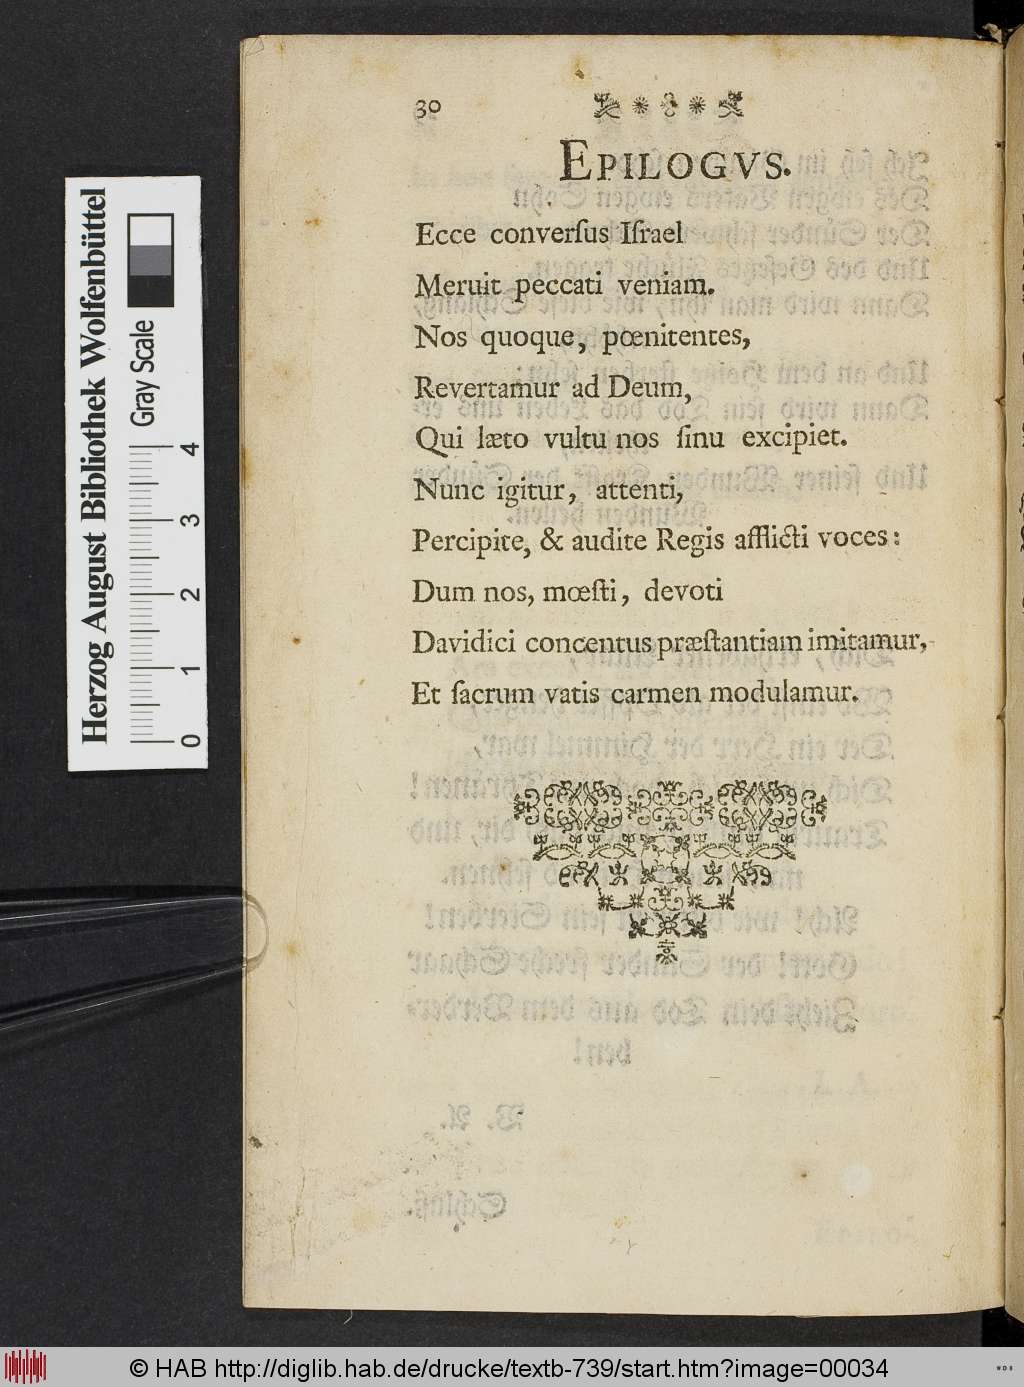 30
EPILOGVS.
Ecce converſus Iſrael
Meruit peccati veniam.
Nos quoque, pœnitentes,
Revertamur ad Deum,
Qui læto vultu nos ſinu excipiet.
Nunc igitur, attenti,
Percipite, & audite Regis afflicti voces:
Dum nos, mœſti, devoti
Davidici concentus præſtantiam imitamur,
Et ſacrum vatis carmen modulamur.
Herzog August Bibliothek Wolfenbüttel
Gray Scale
0 1 2 3 4
© HAB http://diglib.hab.de/drucke/textb-739/start.htm?image=00034